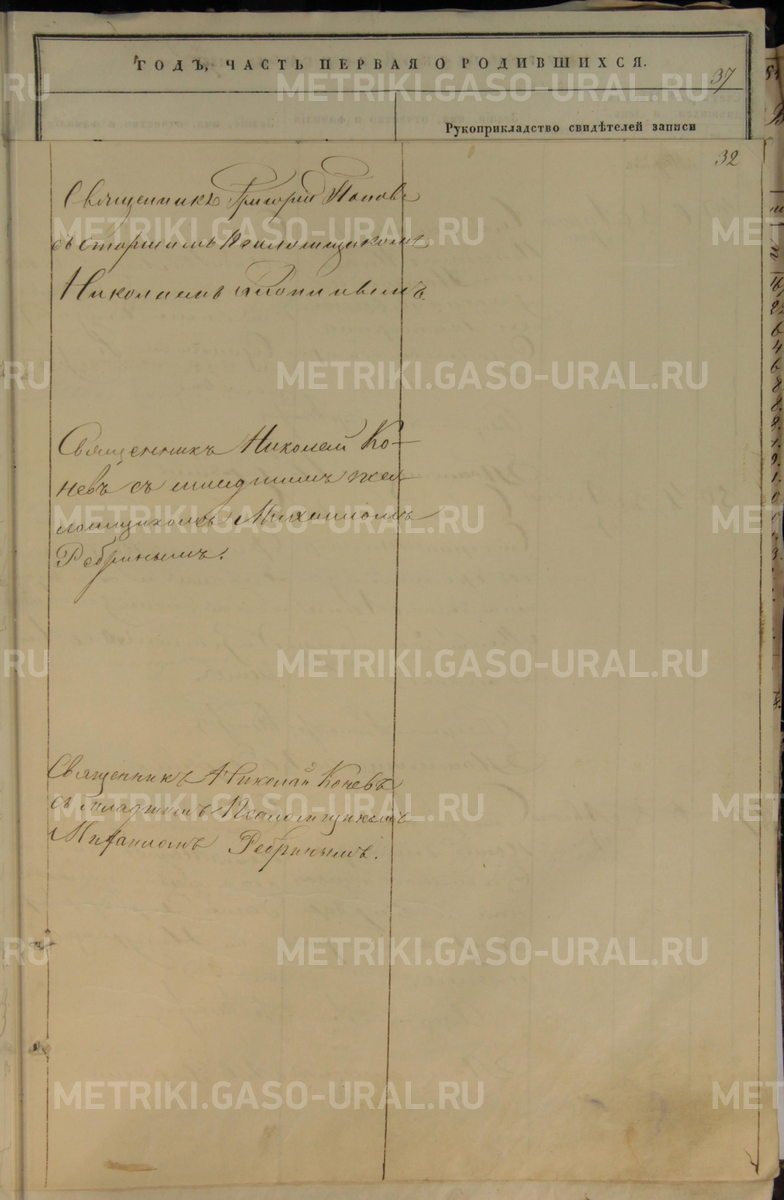 ГОДЪ, ЧАСТЬ ПЕРВАЯ О РОДИВШИХСЯ.
37
Рукоприкладство свидѣтелей записи
32
Священникъ Григорій Поповъ
съ старшимъ Псаломщикомъ
Николаемъ
Священникъ Николай Ко-
невъ съ младшимъ псал
ломщикомъ Михаиломъ
Ребринымъ.
Священникъ Николай Коневъ
съ младшимъ Псаломщикомъ
Михаиломъ Ребринымъ.
METRIKI.GASO-URAL.RU